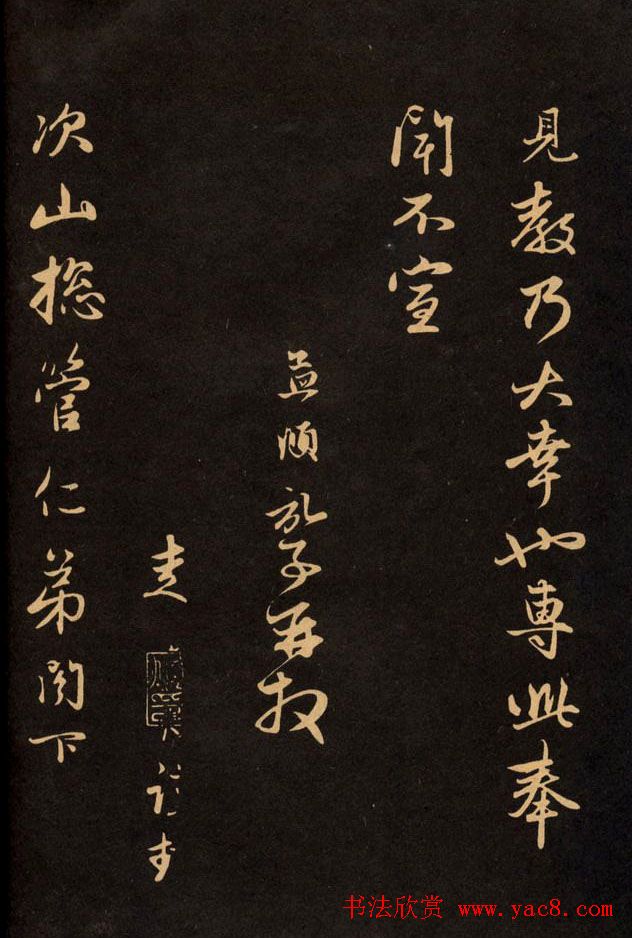 見教乃大幸也專此奉
聞不宣
孟頫 再拜
次山摠管仁弟閣下
书法欣赏 www.yac8.com